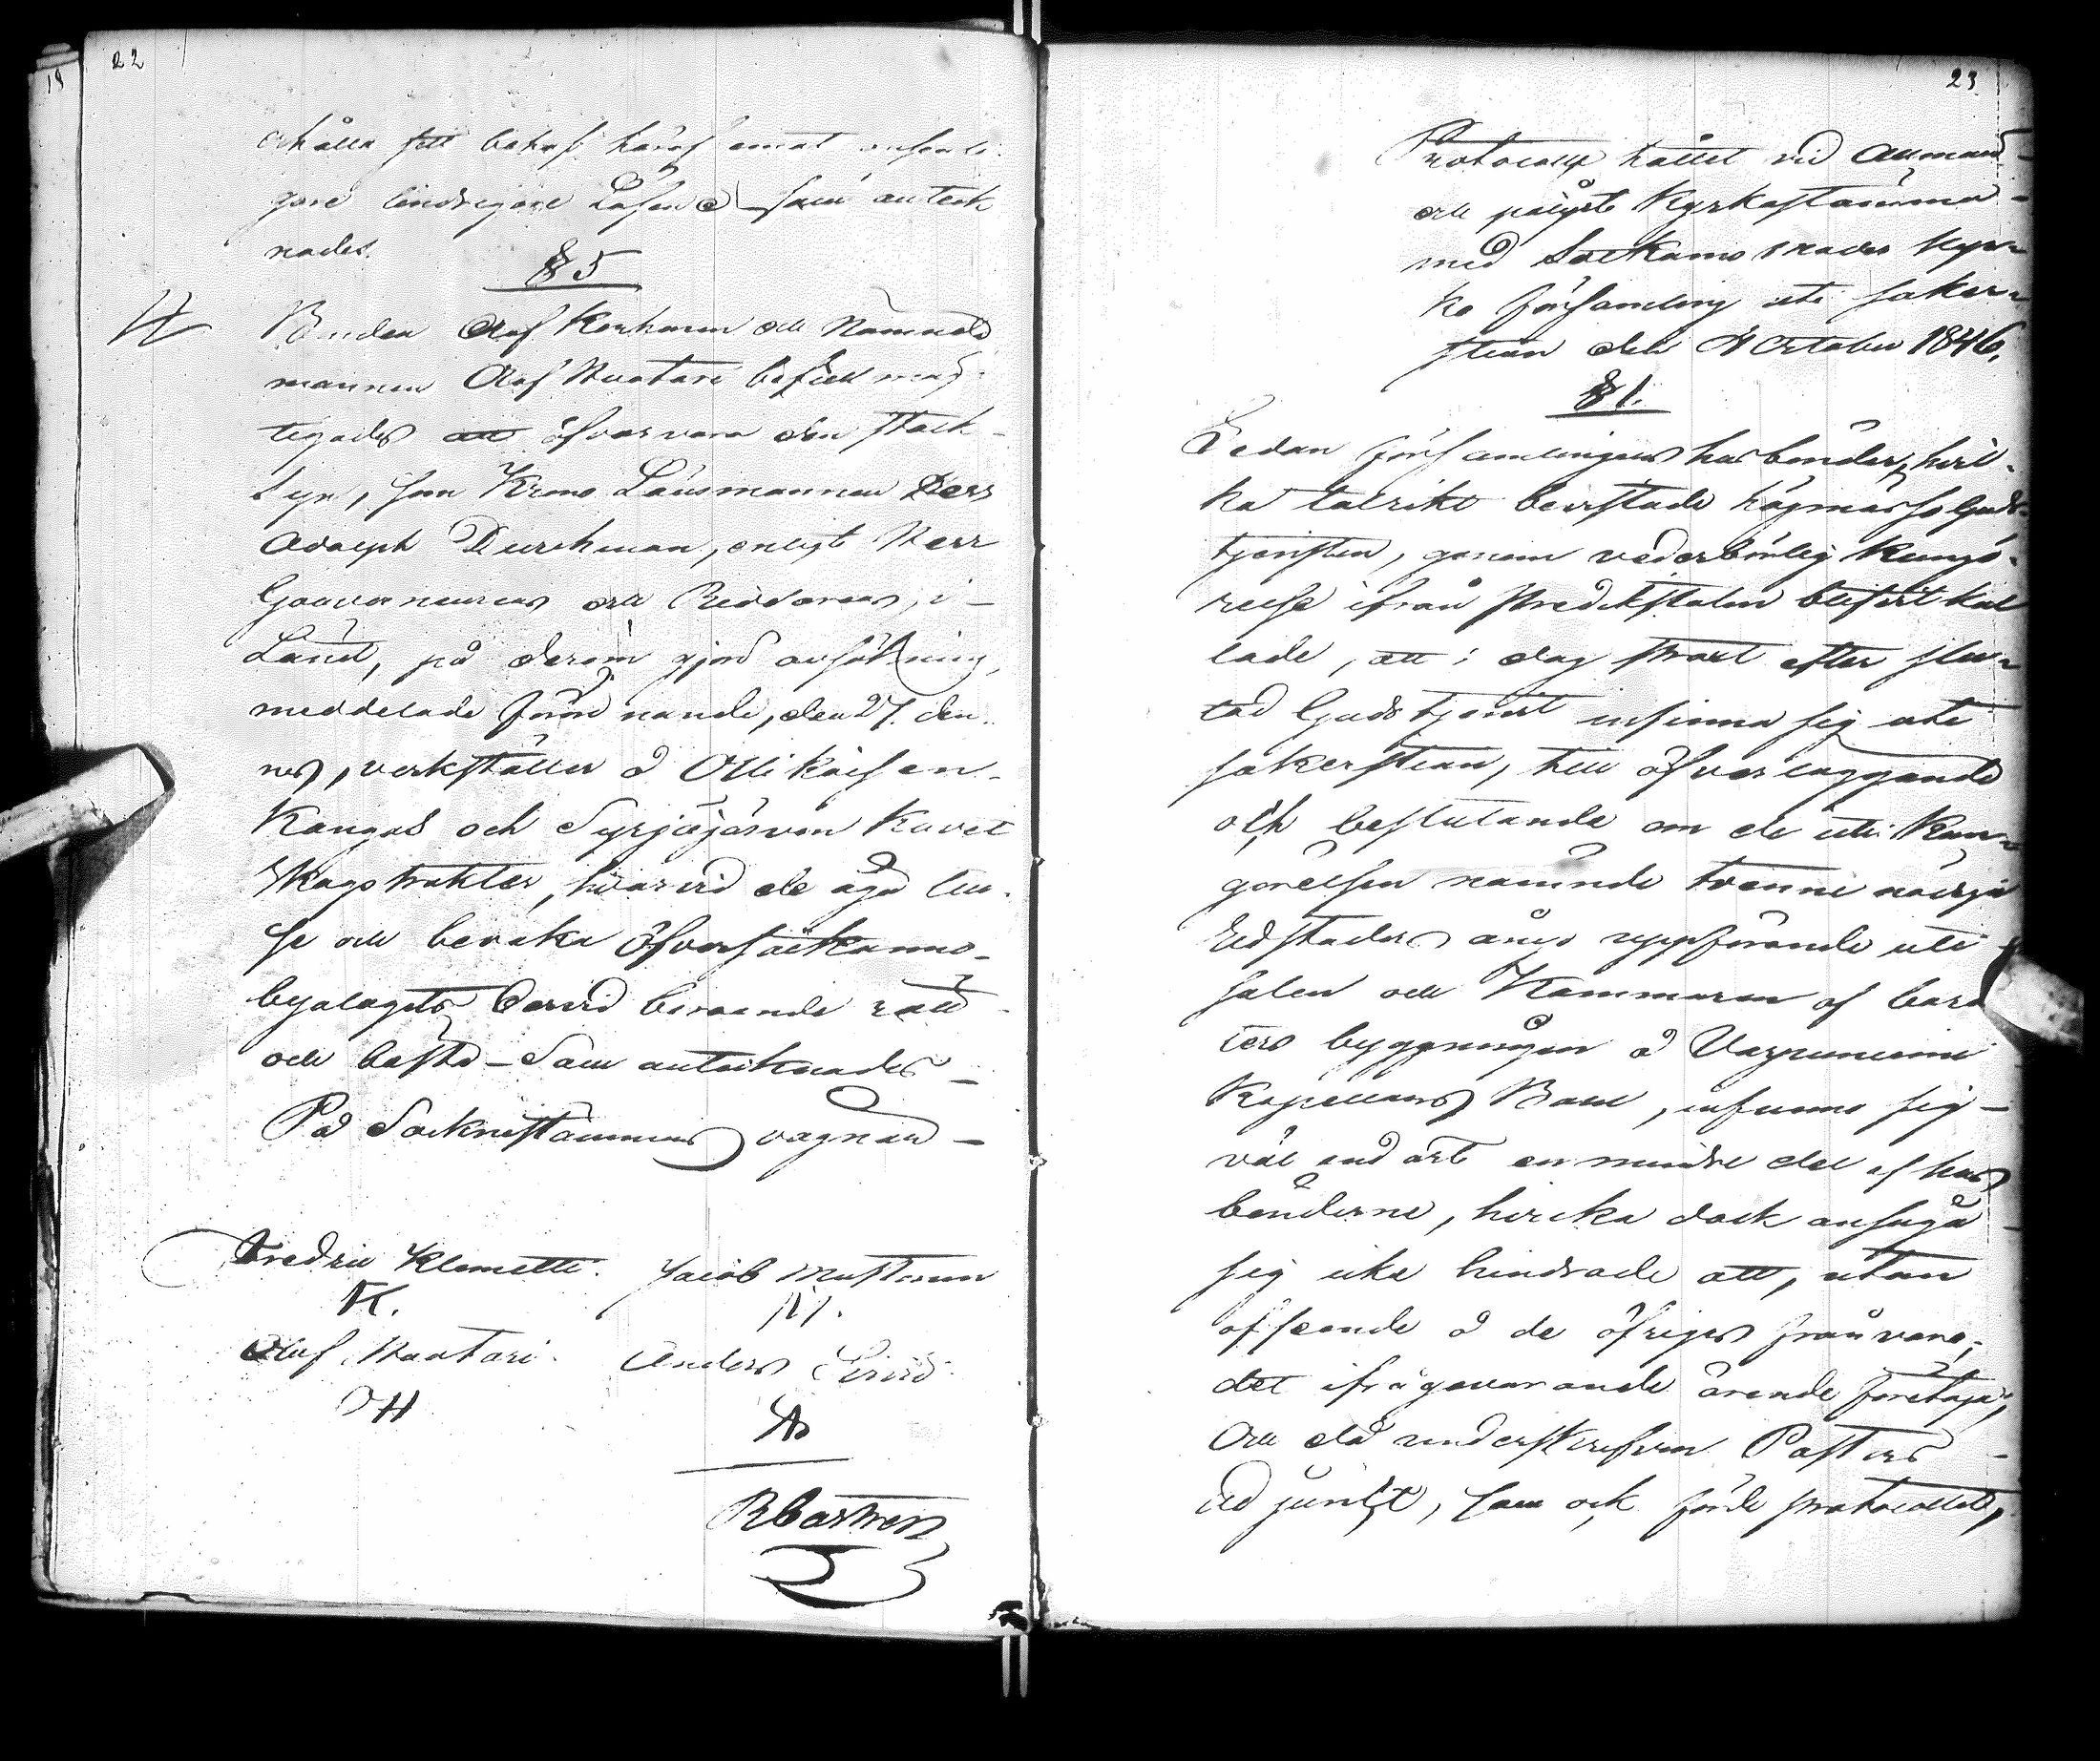 22
erhålla till behof häraf annat onfente-
gare lindrigare Låfene – Som anteck
nades.
§ 5
Bonden Olof Korhonen och Nämnde
mannen Olof Huotari befullmäg-
tigades att öfvervara den stock-
syn, som Krono Länsmannen Herr
Adolph Durchman, enligt Herr
Gouverneurens och Riddarens, i
Länet, på derom gjord ansökning,
meddelade förordnande, den 27. den-
nes, verkställer å Ollikaisen-
Kangas och Syrjäjärven Kavet
skogstrakter, hvarvid de äga till-
se och bevaka Öfversotkamo-
byalagets dervid beroende rätt
och bästa – Som antecknades –
På Socknestämmans vägnar –
Fredric Klemetti. Jacob Mustonen
K. M.
Olof Huotari. Anders
OH
RCastren
23
Protocoll hållet vid Allmän
och pålyst Kyrkostämma
med Sotkamo moder Kyr-
ko församling uti saker-
stian den 4 October 1846.
§ 1.
Sedan församlingens husbönder, hvil-
ka talrikt bevistade högmässo Guds-
tjensten, genom vederbörlig kungö-
relse ifrån Predikstolen blifvit kal
lade, att i dag strax efter slu-
tad Gudstjenst infinna sig uti
sakerstian, till öfverläggande
och beslutande om de uti Kun-
görelsen nämnde tvenne nödiga
Eldstäders ännu uppförande uti
salen och Kammaren af karak
ters byggningen å Varpuniemi
Kapellans Bohl, infunno sig
väl endast en mindre del af hus
bönderne, hvilka dock ansågo
sig icke hindrade att, utan
afseende å de öfriges frånvaro,
det ifrågavarande ärende företaga;
Och då underskrifven Pastors
Adjunkt, som ock förde protocollet,